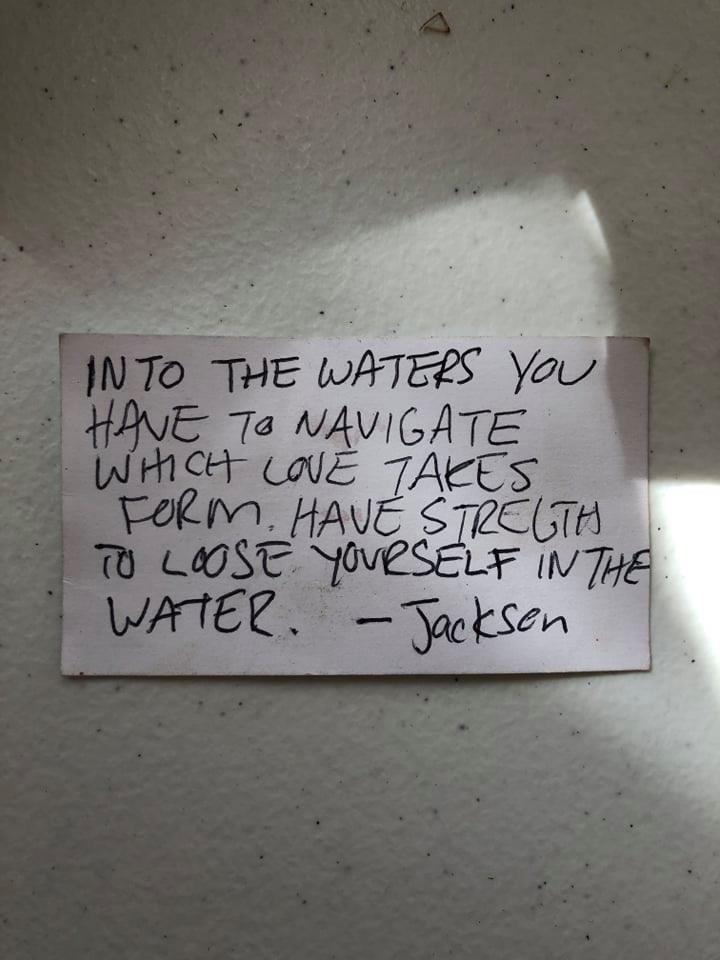 INTO THE WATERS YOU
HAVE TO NAVIGATE
WHICH LOVE TAKES
FORM. HAVE STREGTH
TO LOOSE YOURSELF IN THE
WATER. – Jackson